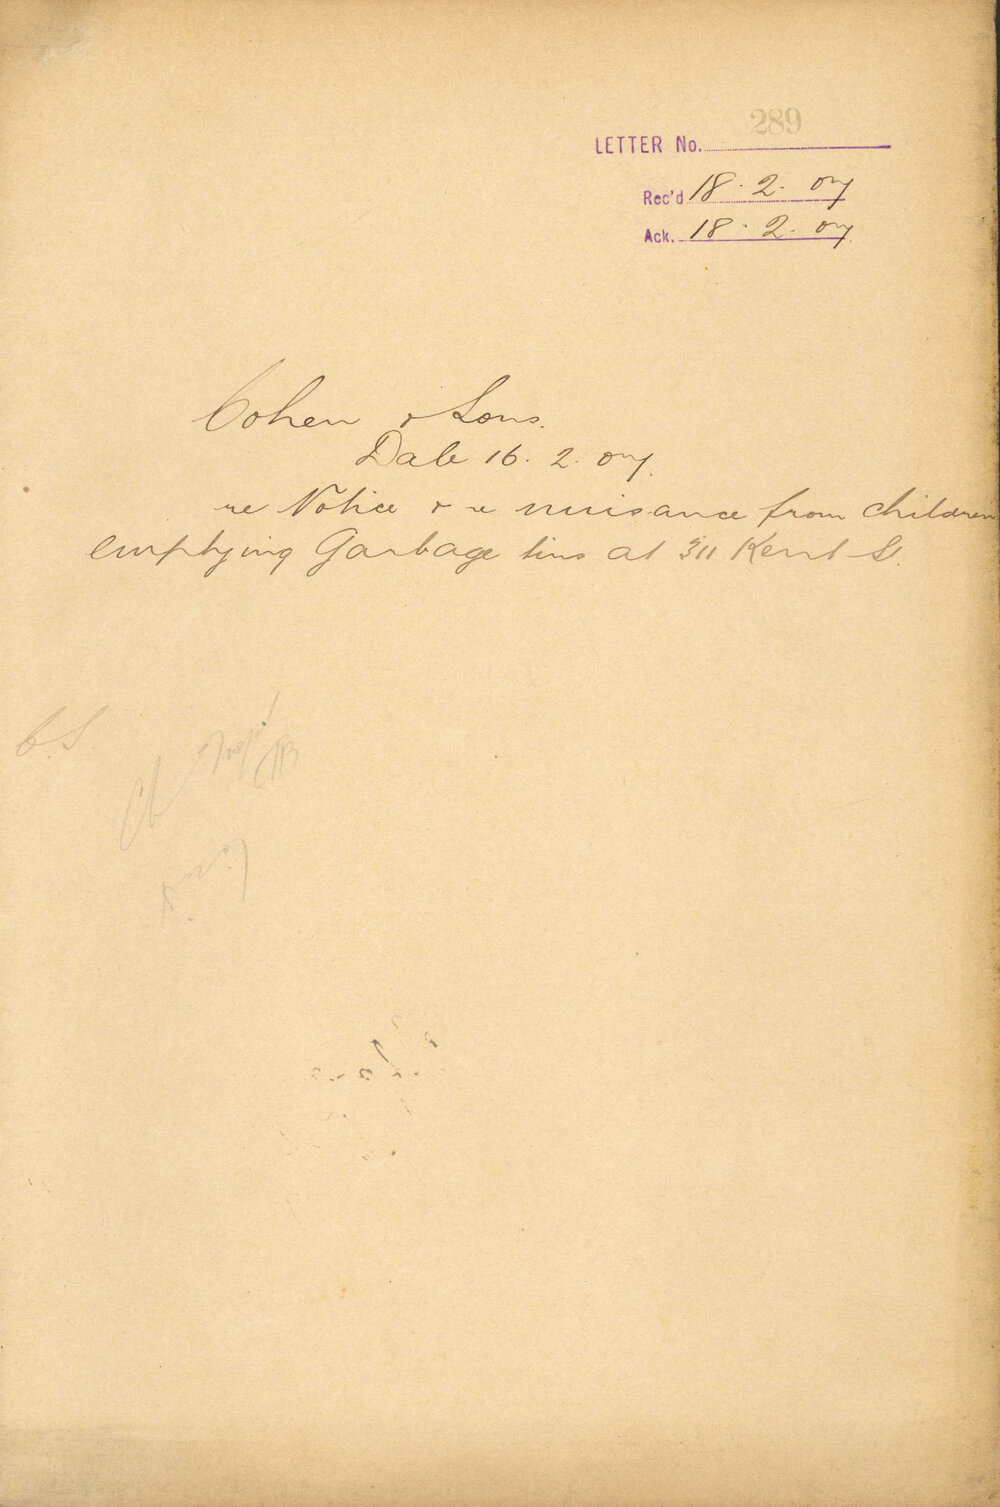 289
LETTER No.
Rec'd 18. 2. 07
Ack. 18. 2. 07
Cohen & Sons.
Date 16. 2. 07.
re Notice & re nuisance from children
emptying Garbage tins at 311 Kent St.
C.S